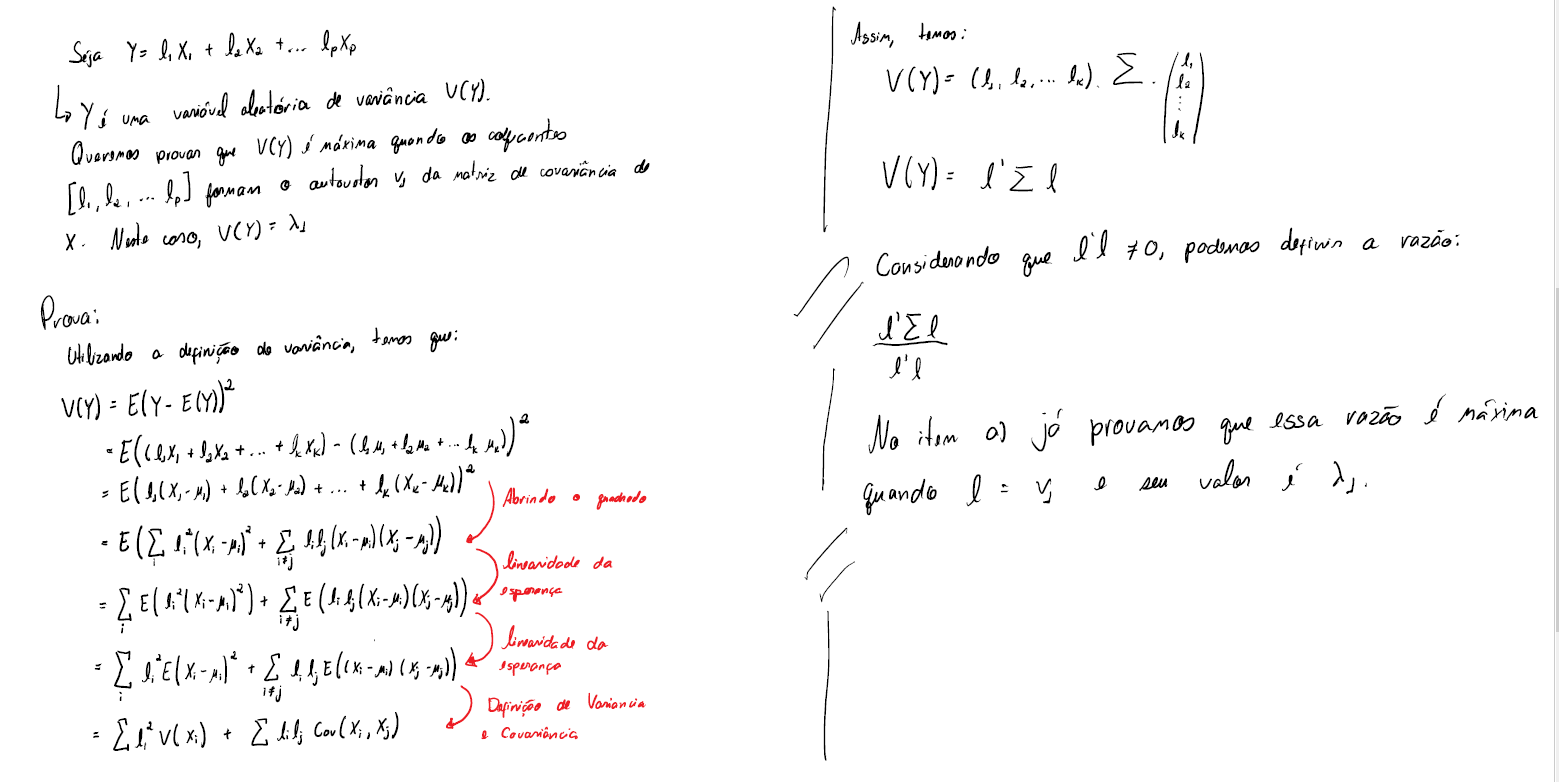 Seja Y = l₁X₁ + l₂X₂ + ... lₚXₚ
↳ Y é uma variável aleatória de variância V(Y).
Queremos provar que V(Y) é máxima quando os coeficientes
[l₁, l₂, ... lₚ] formam o autovetor v₁ da matriz de covariância de
X. Neste caso, V(Y) = λ₁
Prova:
Utilizando a definição de variância, temos que:
V(Y) = E(Y - E(Y))²
= E((l₁X₁ + l₂X₂ + ... + lₖXₖ) - (l₁μ₁ + l₂μ₂ + ... lₖ μₖ))²
= E(l₁(X₁-μ₁) + l₂(X₂-μ₂) + ... + lₖ(Xₖ-μₖ))²
Abrindo o quadrado
= E(∑ᵢ lᵢ²(Xᵢ-μᵢ)² + ∑_{i≠j} lᵢlⱼ(Xᵢ-μᵢ)(Xⱼ-μⱼ))
linearidade da
esperança
= ∑ᵢ E(lᵢ²(Xᵢ-μᵢ)²) + ∑_{i≠j} E(lᵢlⱼ(Xᵢ-μᵢ)(Xⱼ-μⱼ))
linearidade da
esperança
= ∑ᵢ lᵢ²E(Xᵢ-μᵢ)² + ∑_{i≠j} lᵢ lⱼ E((Xᵢ-μᵢ)(Xⱼ-μⱼ))
Definição de Variancia
e Covariância
= ∑ lᵢ² V(Xᵢ) + ∑ lᵢlⱼ Cov(Xᵢ, Xⱼ)
Assim, temos:
V(Y) = (l₁, l₂, ... lₖ) . ∑ . (l₁
l₂
⋮
lₖ)
V(Y) = l' ∑ l
Considerando que l'l ≠ 0, podemos definir a razão:
l'∑l
l'l
No item a) já provamos que essa razão é máxima
quando l = v₁ e seu valor é λ₁.